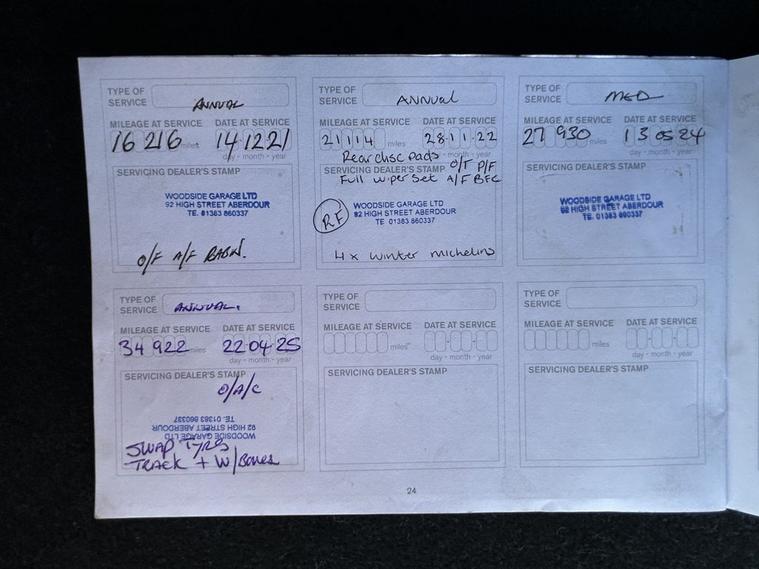 TYPE OF SERVICE ANNUAL
MILEAGE AT SERVICE DATE AT SERVICE
16 216 miles 14 12 21
day - month - year
SERVICING DEALER'S STAMP
WOODSIDE GARAGE LTD
92 HIGH STREET ABERDOUR
TE. 01383 860337
O/F A/F RABN.
TYPE OF SERVICE ANNUAL
MILEAGE AT SERVICE DATE AT SERVICE
21114 miles 28-11-22
day - month - year
Rear disc pads O/T P/F
SERVICING DEALER'S STAMP
Full wiper set A/F BFC
WOODSIDE GARAGE LTD
92 HIGH STREET ABERDOUR
TE. 01383 860337
RF
4x winter michelins
TYPE OF SERVICE MED
MILEAGE AT SERVICE DATE AT SERVICE
27 930 miles 13 05 24
day - month - year
SERVICING DEALER'S STAMP
WOODSIDE GARAGE LTD
92 HIGH STREET ABERDOUR
TE. 01383 860337
TYPE OF SERVICE ANNUAL.
MILEAGE AT SERVICE DATE AT SERVICE
34 922 miles 22 04 25
day - month - year
SERVICING DEALER'S STAMP
O/A/C
WOODSIDE GARAGE LTD
92 HIGH STREET ABERDOUR
TE. 01383 860337
SWAP TYRS
TRACK + W/
TYPE OF SERVICE
MILEAGE AT SERVICE DATE AT SERVICE
miles
day - month - year
SERVICING DEALER'S STAMP
TYPE OF SERVICE
MILEAGE AT SERVICE DATE AT SERVICE
miles
day - month - year
SERVICING DEALER'S STAMP
24